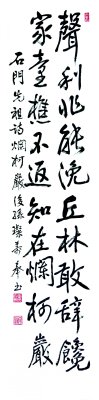 聲利非能浼丘林敢辭饒
家童樵不返知在爛柯巖
石門先祖詩爛柯巖後孫璨壽奉書